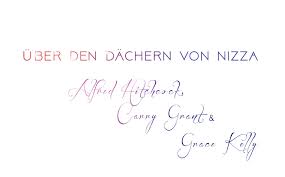 ÜBER DEN DÄCHERN VON NIZZA
Alfred Hitchcock,
Carry Grant &
Grace Kelly